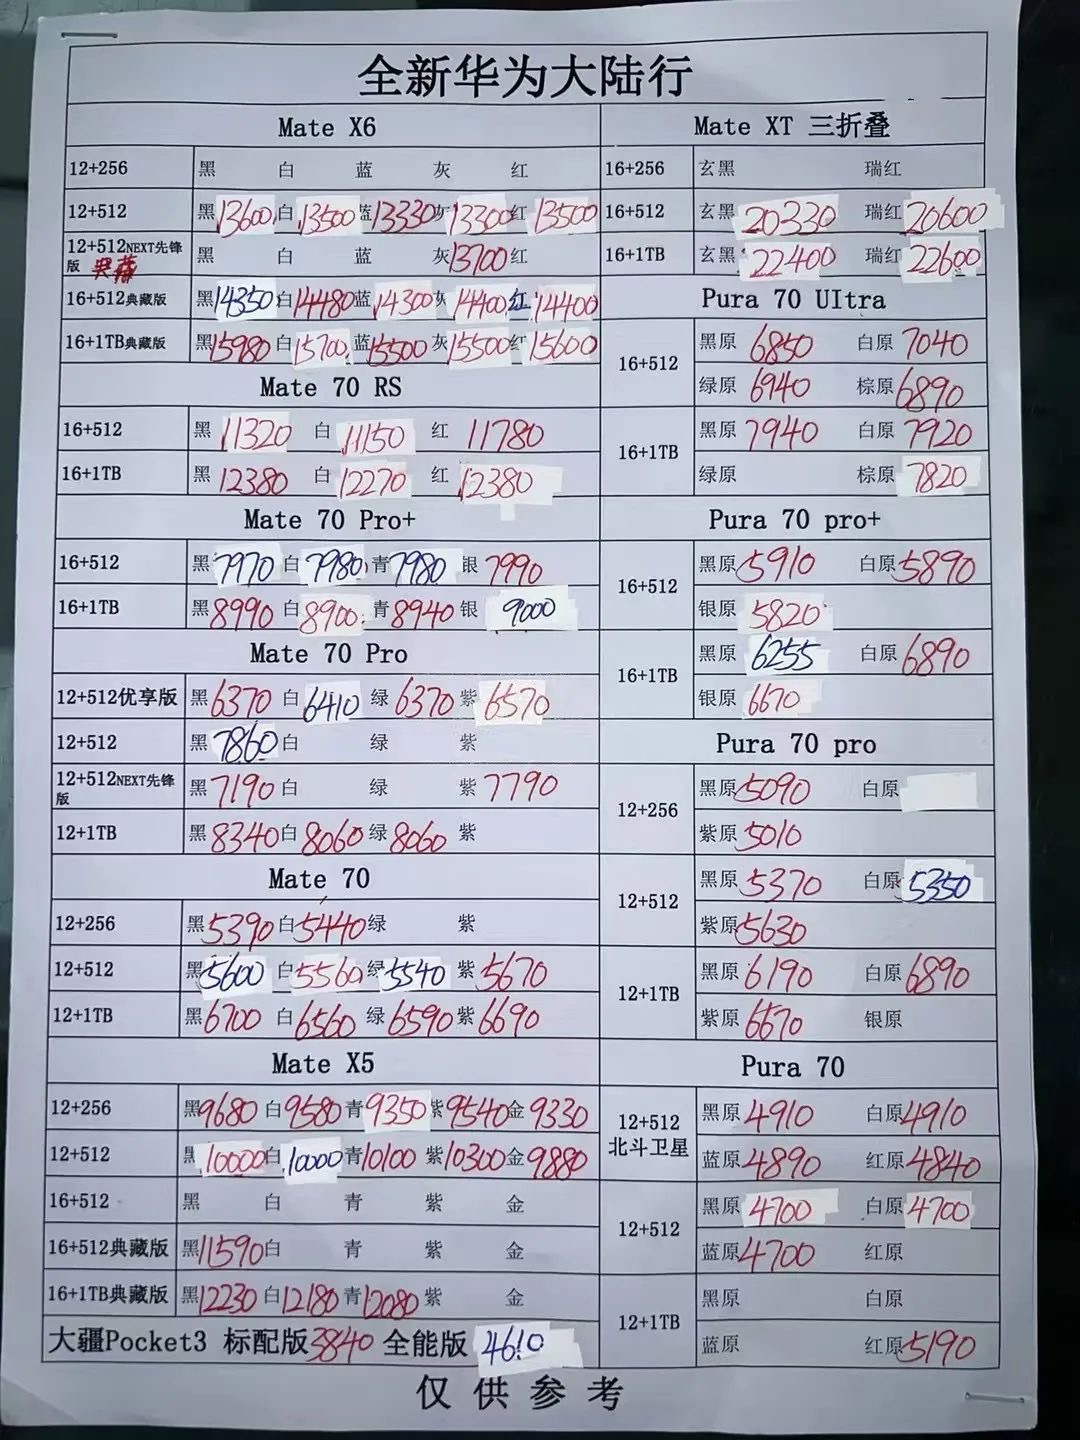 全新华为大陆行
Mate X6
12+256 黑 白 蓝 灰 红
12+512 黑13600 白13500 蓝13330 灰13300 红13500
12+512NEXT先锋版 典藏 黑 白 蓝 灰13700 红
16+512典藏版 黑14350 白14480 蓝14300 灰14400 红14400
16+1TB典藏版 黑15980 白15700 蓝15500 灰15500 红15600
Mate 70 RS
16+512 黑 11320 白 11150 红 11780
16+1TB 黑 12380 白 12270 红 12380
Mate 70 Pro+
16+512 黑7970 白7980 青7980 银7990
16+1TB 黑8990 白8900 青8940 银 9000
Mate 70 Pro
12+512优享版 黑6370 白6410 绿6370 紫6570
12+512 黑7860 白 绿 紫
12+512NEXT先锋版 黑7190 白 绿 紫7790
12+1TB 黑8340 白8060 绿8060 紫
Mate 70
12+256 黑5390 白5440 绿 紫
12+512 黑5600 白5560 绿5540 紫5670
12+1TB 黑6700 白6560 绿6590 紫6690
Mate X5
12+256 黑9680 白9580 青9350 紫9540 金9330
12+512 黑10000 白10000 青10100 紫10300 金9880
16+512 黑 白 青 紫 金
16+512典藏版 黑11590 白 青 紫 金
16+1TB典藏版 黑12230 白12180 青12080 紫 金
大疆Pocket3 标配版3840 全能版 4610
Mate XT 三折叠
16+256 玄黑 瑞红
16+512 玄黑 20330 瑞红20600
16+1TB 玄黑 22400 瑞红22600
Pura 70 UItra
16+512 黑原 6850 白原 7040
绿原 6940 棕原6890
16+1TB 黑原 7940 白原 7920
绿原 棕原 7820
Pura 70 pro+
16+512 黑原5910 白原5890
银原 5820
16+1TB 黑原 6255 白原6890
银原 6670
Pura 70 pro
12+256 黑原5090 白原
紫原5010
12+512 黑原 5370 白原5350
紫原5630
12+1TB 黑原 6190 白原6890
紫原 6670 银原
Pura 70
12+512北斗卫星 黑原4910 白原4910
蓝原4890 红原4840
12+512 黑原 4700 白原4700
蓝原4700 红原
12+1TB 黑原 白原
蓝原 红原5190
仅供参考